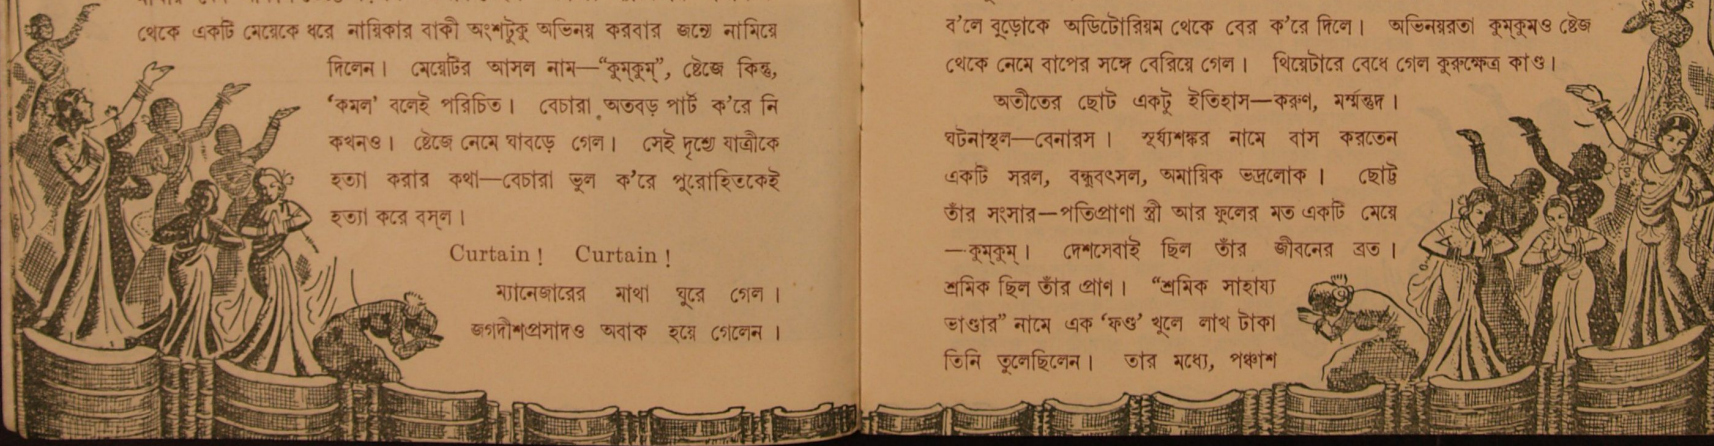 থেকে একটি মেয়েকে ধরে নায়িকার বাকী অংশটুকু অভিনয় করবার জন্যে নামিয়ে
দিলেন। মেয়েটির আসল নাম—“কুম্‌কুম্‌”, ষ্টেজে কিন্তু,
‘কমল’ বলেই পরিচিত। বেচারা অতবড় পার্ট ক’রে নি
কখনও। ষ্টেজে নেমে ঘাবড়ে গেল। সেই দৃশ্যে যাত্রীকে
হত্যা করার কথা—বেচারা ভুল ক’রে পুরোহিতকেই
হত্যা করে বস্‌ল।
Curtain! Curtain!
ম্যানেজারের মাথা ঘুরে গেল।
জগদীশপ্রসাদও অবাক হয়ে গেলেন।
ব’লে বুড়োকে অডিটোরিয়ম থেকে বের ক’রে দিলে। অভিনয়রতা কুম্‌কুমও ষ্টেজ
থেকে নেমে বাপের সঙ্গে বেরিয়ে গেল। থিয়েটারে বেধে গেল কুরুক্ষেত্র কাণ্ড।
অতীতের ছোট একটু ইতিহাস—করুণ, মর্ম্মন্তুদ।
ঘটনাস্থল—বেনারস। সূর্য্যশঙ্কর নামে বাস করতেন
একটি সরল, বন্ধুবৎসল, অমায়িক ভদ্রলোক। ছোট্ট
তাঁর সংসার—পতিপ্রাণা স্ত্রী আর ফুলের মত একটি মেয়ে
—কুম্‌কুম্‌। দেশসেবাই ছিল তাঁর জীবনের ব্রত।
শ্রমিক ছিল তাঁর প্রাণ। “শ্রমিক সাহায্য
ভাণ্ডার” নামে এক ‘ফণ্ড’ খুলে লাখ টাকা
তিনি তুলেছিলেন। তার মধ্যে, পঞ্চাশ